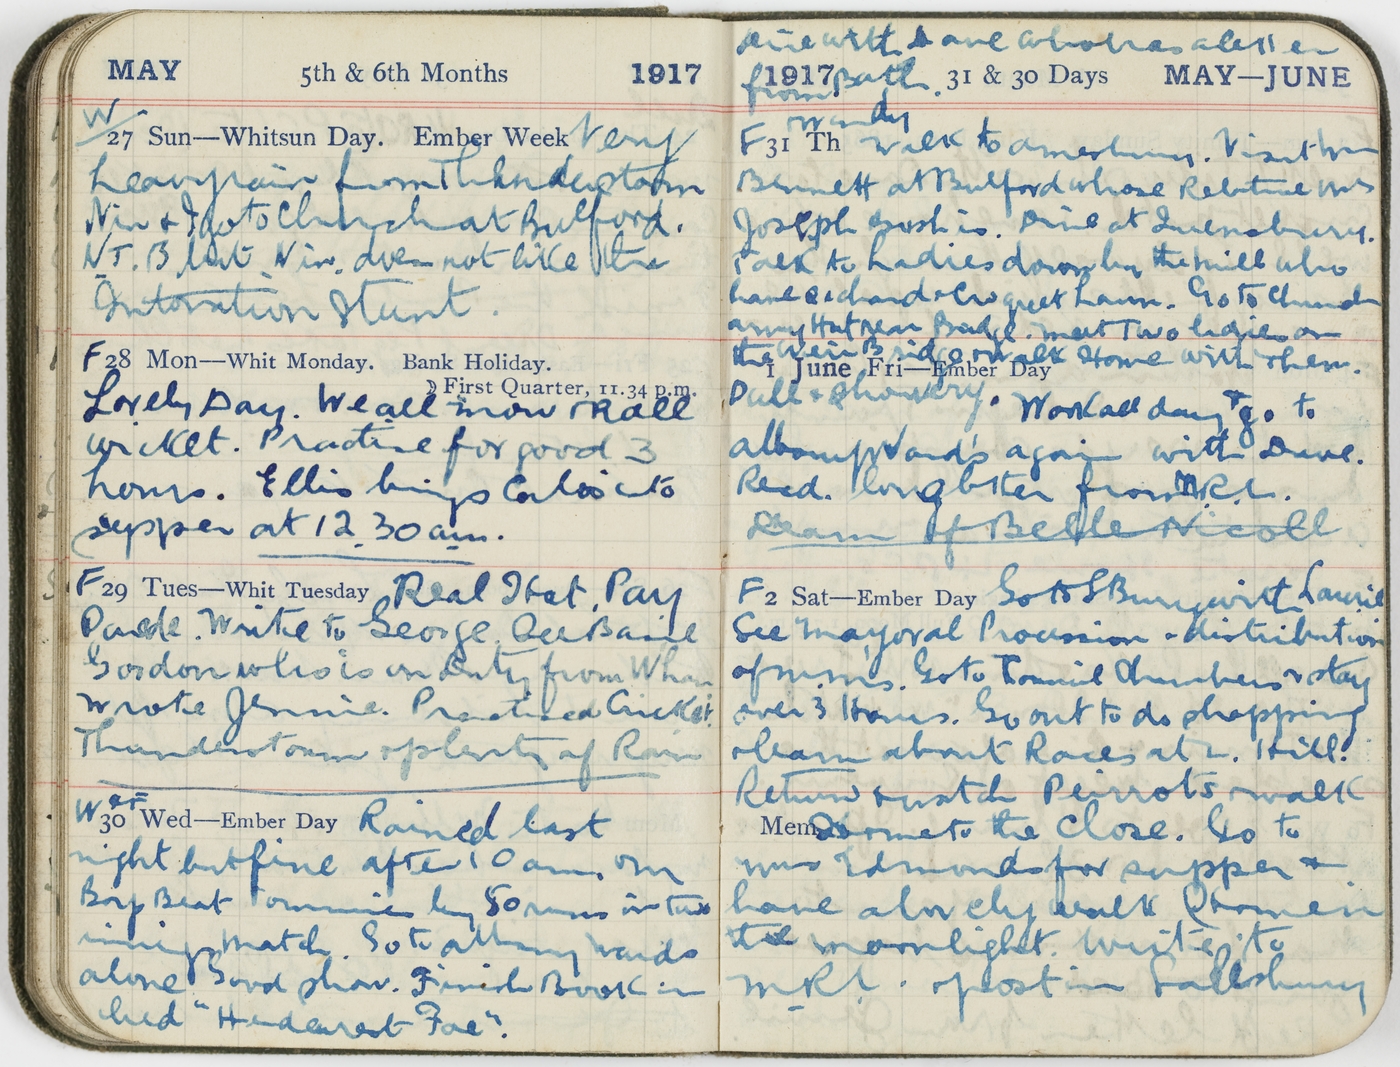 MAY 5th & 6th Months 1917
W 27 Sun—Whitsun Day. Ember Week Very
heavy rain from Thunderstorm
Nin & I go to Church at Bulford.
Nin. does not like the
Intonation Stunt.
F 28 Mon—Whit Monday. Bank Holiday.
☽ First Quarter, 11.34 p.m.
Lovely Day. We all mow & Roll
wicket. Practise for good 3
hours. Ellis brings to
supper at 12.30 am.
F 29 Tues—Whit Tuesday Real Hot. Pay
Parade. Write to George. See
Gordon who is on Duty from
wrote Jennie. Practised Cricket.
Thunderstorm & plenty of Rain
Wet F
30 Wed—Ember Day Rained last
night but fine after 10 am. Our
Boys Beat Tommies by 80 runs in two
innings match. Go to Albany Wards
alone Good show. Finish Book in
bed "Her dearest Foe".
1917 31 & 30 Days MAY—JUNE
Dine with Dave who has a letter
from Bath.
windy
F 31 Th Walk to Amesbury. Visit
Bennett at Bulford whose Relative was
Joseph Gosh is. Dine at Queensbury.
Talk to Ladies down by the mill who
have orchard & Croquet Lawn. Go to Church
army Hut near Bridge. Meet Two ladies on
the Weir Bridge & walk Home with them.
1 June Fri—Ember Day
Dull & Showery. Work all day & go to
Albany Wards again with Dave.
Read. long letter from M.R.L.
Dream of Belle Nicoll
F 2 Sat—Ember Day Go to S'Bury with Laurie
See Mayoral Procession & distribution
of m.ms. Go to Council Chambers & stay
over 3 Hours. Go out to do shopping
& learn about Races at Hill.
Return & watch Peirrots & walk
Mem
Home to the Close. Go to
Mrs Edmonds for supper &
have a lovely walk Home in
the moonlight. Write to
M.R.L. & post in Sallisbury